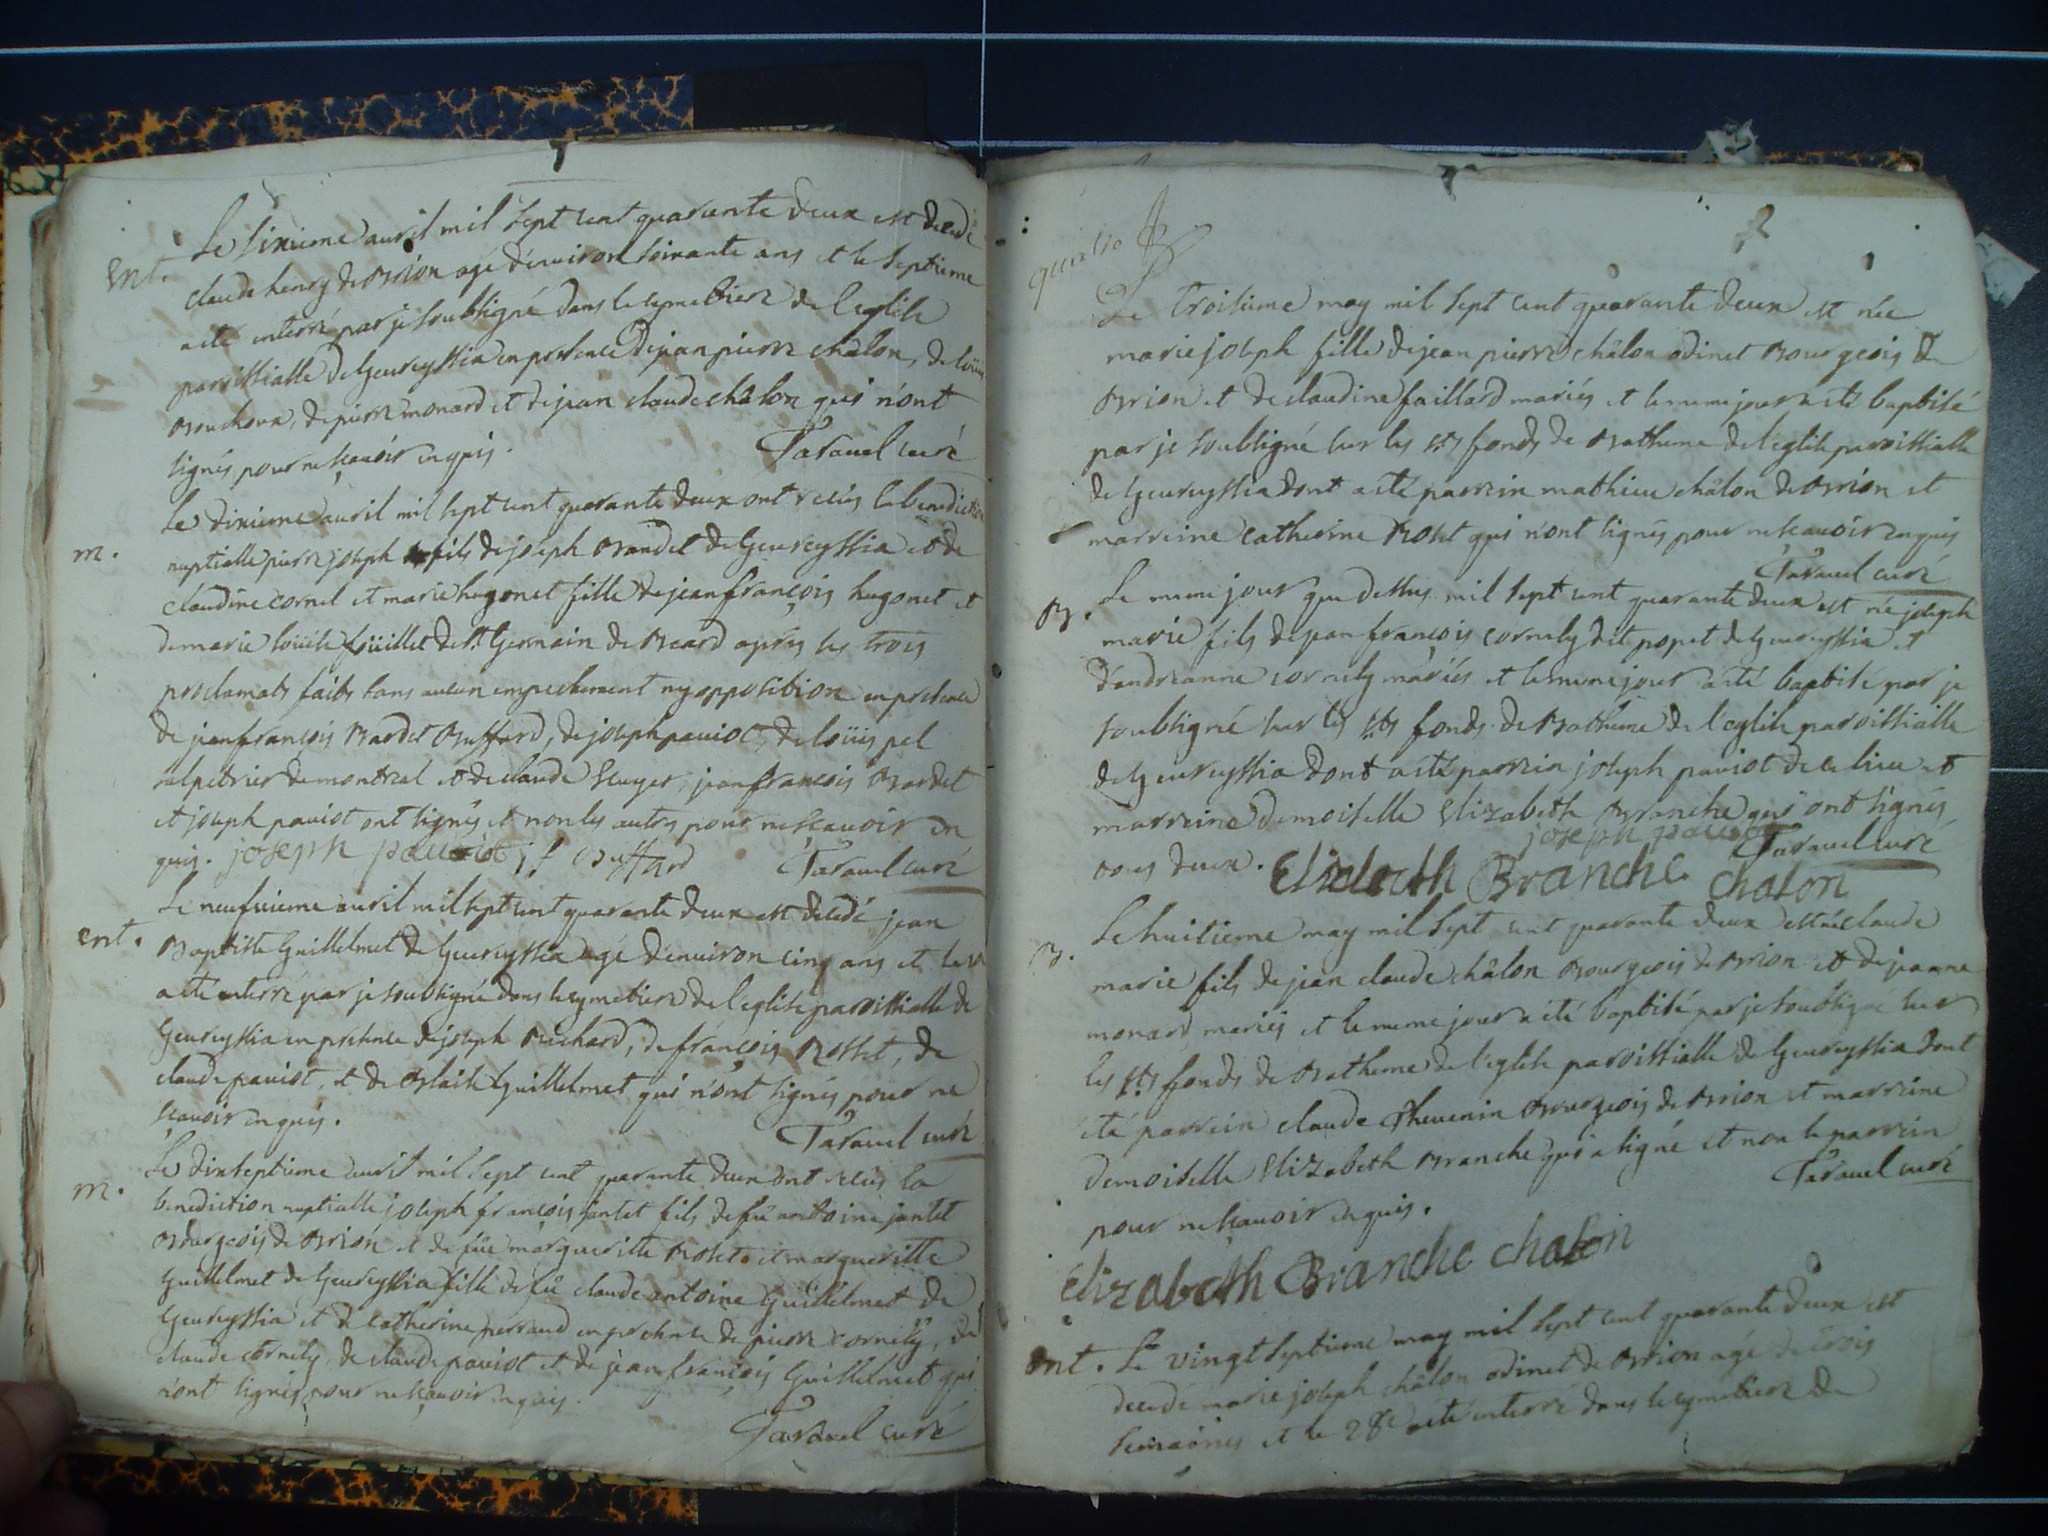 Ent.
Le sixieme auril mil sept cent quarante deux est decedé
claude henry de Brion agé d'enuiron soixante ans et le septieme
a eté enterré par je soubsigné dans le cymetiere de l'eglise
paroissialle de Geureyssia en presence de jean pierre châlon, de loüis
de pierre monard et de jean claude châlon qui n'ont
signés pour ne sçauoir enquis.
Tarauel curé
m.
Le dixieme auril mil sept cent quarante deux ont recüs la benediction
nuptialle pierre joseph fils de joseph Bandet de Geureyssia et de
claudine cornel et marie hugonet fille de jean françois hugonet et
de marie loüise füillet de St Germain de Beard apres les trois
proclamats faits sans aucun empechement ny opposition en presence
de jean françois Bardet Buffard, de joseph pauiot, de loüis pel
salpetrier de montreal et de claude jean françois Bardet
et joseph pauiot ont signés et non les autres pour ne sçauoir en
quis. joseph pauiot j f Buffard Tarauel curé
ent.
Le neufuieme auril mil sept cent quarante deux est decedé jean
Baptiste Guillelmet de Geureyssia agé d'enuiron cinq ans et le
a eté enterré par je soubsigné dans le cymetiere de l'eglise paroissialle de
Geureyssia en presence de joseph Richard, de françois Rosset, de
claude pauiot, et de Blaise Guillelmet qui n'ont signés pour ne
sçauoir enquis.
Tarauel curé
m.
Le dixseptieme auril mil sept cent quarante deux ont recüs la
benediction nuptialle joseph françois jantet fils de fü antoine jantet
Bourgeois de Brion et de füe margueritte Roset et margueritte
Guillelmet de Geureyssia fille de fü claude antoine Guillelmet de
Geureyssia et de catherine perraud en presence de pierre cornely, de
claude cornely, de claude pauiot et de jean françois Guillelmet qui
n'ont signés pour ne sçauoir enquis.
Tarauel curé
Le troisieme may mil sept cent quarante deux est née
marie joseph fille de jean pierre châlon odinet Bourgeois de
Brion et de claudine faillard mariés et le meme jour a eté baptisé
par je soubsigné sur les sts fonds de Batheme de l'eglise paroissialle
de Geureyssia dont a eté parrein mathieu châlon de Brion et
marreine catherine Roset qui n'ont signés pour ne sçauoir enquis
Tarauel curé
B.
Le meme jour que dessus mil sept cent quarante deux est né joseph
marie fils de jean françois cornely dit popet de Geureyssia et
d'andreanne cornely mariés et le meme jour a eté baptisé par je
soubsigné sur les sts fonds de Batheme de l'eglise paroissialle
de Geureyssia dont a eté parrein joseph pauiot de ce lieu et
marreine demoiselle Elizabeth Branche qui ont signés
tous deux.
joseph pauiot
Tarauel curé
Elizabeth Branche chalon
B.
Le huitieme may mil sept cent quarante deux est né claude
marie fils de jean claude châlon Bourgeois de Brion et de jeanne
monard mariés et le meme jour a eté baptisé par je soubsigné sur
les sts fonds de Batheme de l'eglise paroissialle de Geureyssia dont
eté parrein claude Theuenin Bourgeois de Brion et marreine
demoiselle Elizabeth Branche qui a signé et non le parrein
pour ne sçauoir enquis.
Tarauel curé
Elizabeth Branche chalon
ent.
Le vingt septieme may mil sept cent quarante deux est
decede marie joseph châlon odinet de Brion agé de trois
semaines et le 28e a eté enterré dans le cymetiere de